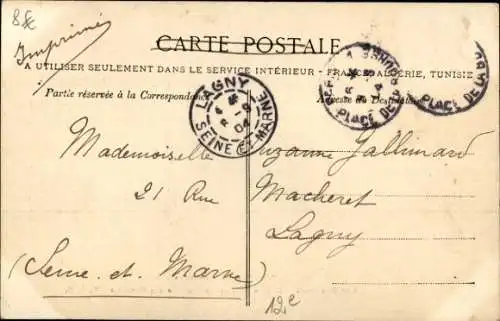 8 f
Imprimé
CARTE POSTALE
A UTILISER SEULEMENT DANS LE SERVICE INTÉRIEUR - FRANCE, ALGÉRIE, TUNISIE
Partie réservée à la Correspondance
Adresse du Destinataire
LAGNY
SEINE ET MARNE
PLACE DE LA B
Mademoiselle Suzanne Gallimard
21 Rue Macheret
Lagny
(Seine et Marne)
12e